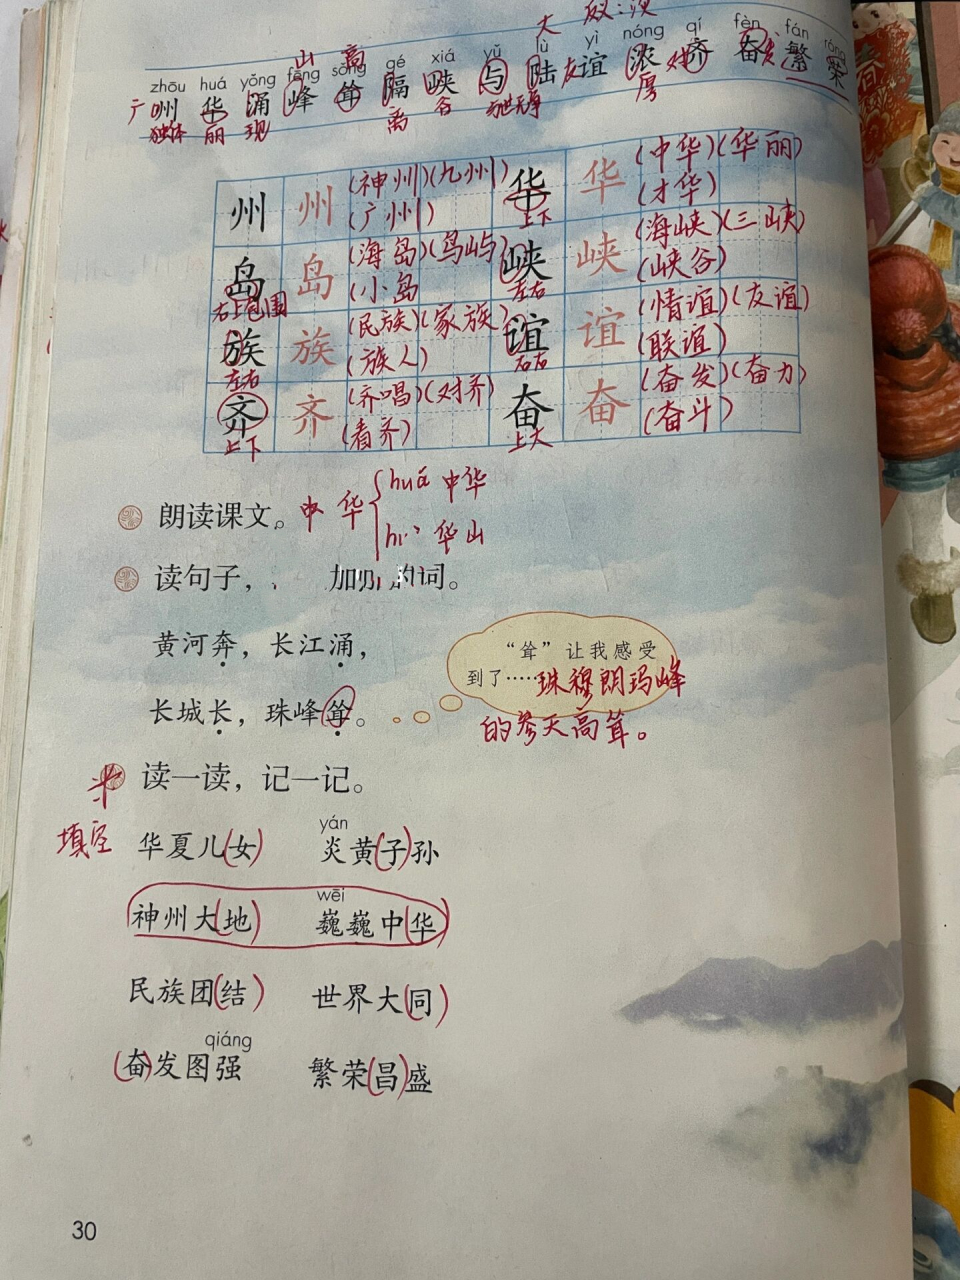 山 高 大
zhōu huá yǒng fēng sǒng gé xiá yǔ lù yì nóng qí fèn fán róng
广州 华 涌 峰 耸 隔 峡 与 陆 友谊 浓 齐 奋发 繁 荣
独体 丽 现 离 谷 与世无争 厚
州 州 (神州)(九州) 华 华 (中华)(华丽)
(广州) 上下 (才华)
岛 岛 (海岛)(岛屿) 峡 峡 (海峡)(三峡)
右上包围 (小岛 左右 (峡谷)
族 族 (民族)(家族) 谊 谊 (情谊)(友谊)
左右 (族人) 右右 (联谊)
齐 齐 (齐唱)(对齐) 奋 奋 (奋发)(奋力)
上下 (看齐) 上大 (奋斗)
朗读课文。 中 华 huá 中华
华山
读句子, 加 的词。
黄河奔,长江涌,
长城长,珠峰耸。
“耸”让我感受
到了……珠穆朗玛峰
的参天高耸。
读一读,记一记。
填空
yán
华夏儿(女) 炎黄(子)孙
wēi
神州大(地) 巍巍中(华)
民族团(结) 世界大(同)
qiáng
(奋)发图强 繁荣(昌)盛
30